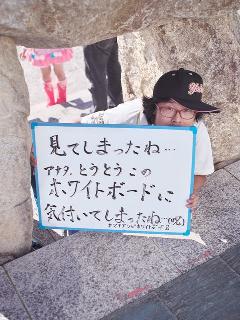 見てしまったね…
アナタ、とうとうこの
ホワイトボードに
気付いてしまったね…(呪)